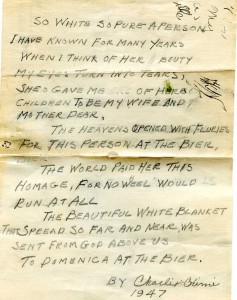 SO WHITE SO PURE A PERSON
I HAVE KNOWN FOR MANY YEARS
WHEN I THINK OF HER BEUTY
MY EYES TURN INTO TEARS,
SHE GAVE ME OF HER
CHILDREN TO BE MY WIFE AND
MOTHER DEAR.
THE HEAVENS OPENED WITH FLURIES
FOR THIS PERSON AT THE BIER.
THE WORLD PAID HER THIS
HOMAGE, FOR NO WEEL WOULD
RUN AT ALL
THE BEAUTIFUL WHITE BLANKET
THAT SPREAD SO FAR AND NEAR, WAS
SENT FROM GOD ABOVE US
TO DOMENICA AT THE BIER.
BY Charlie
1947